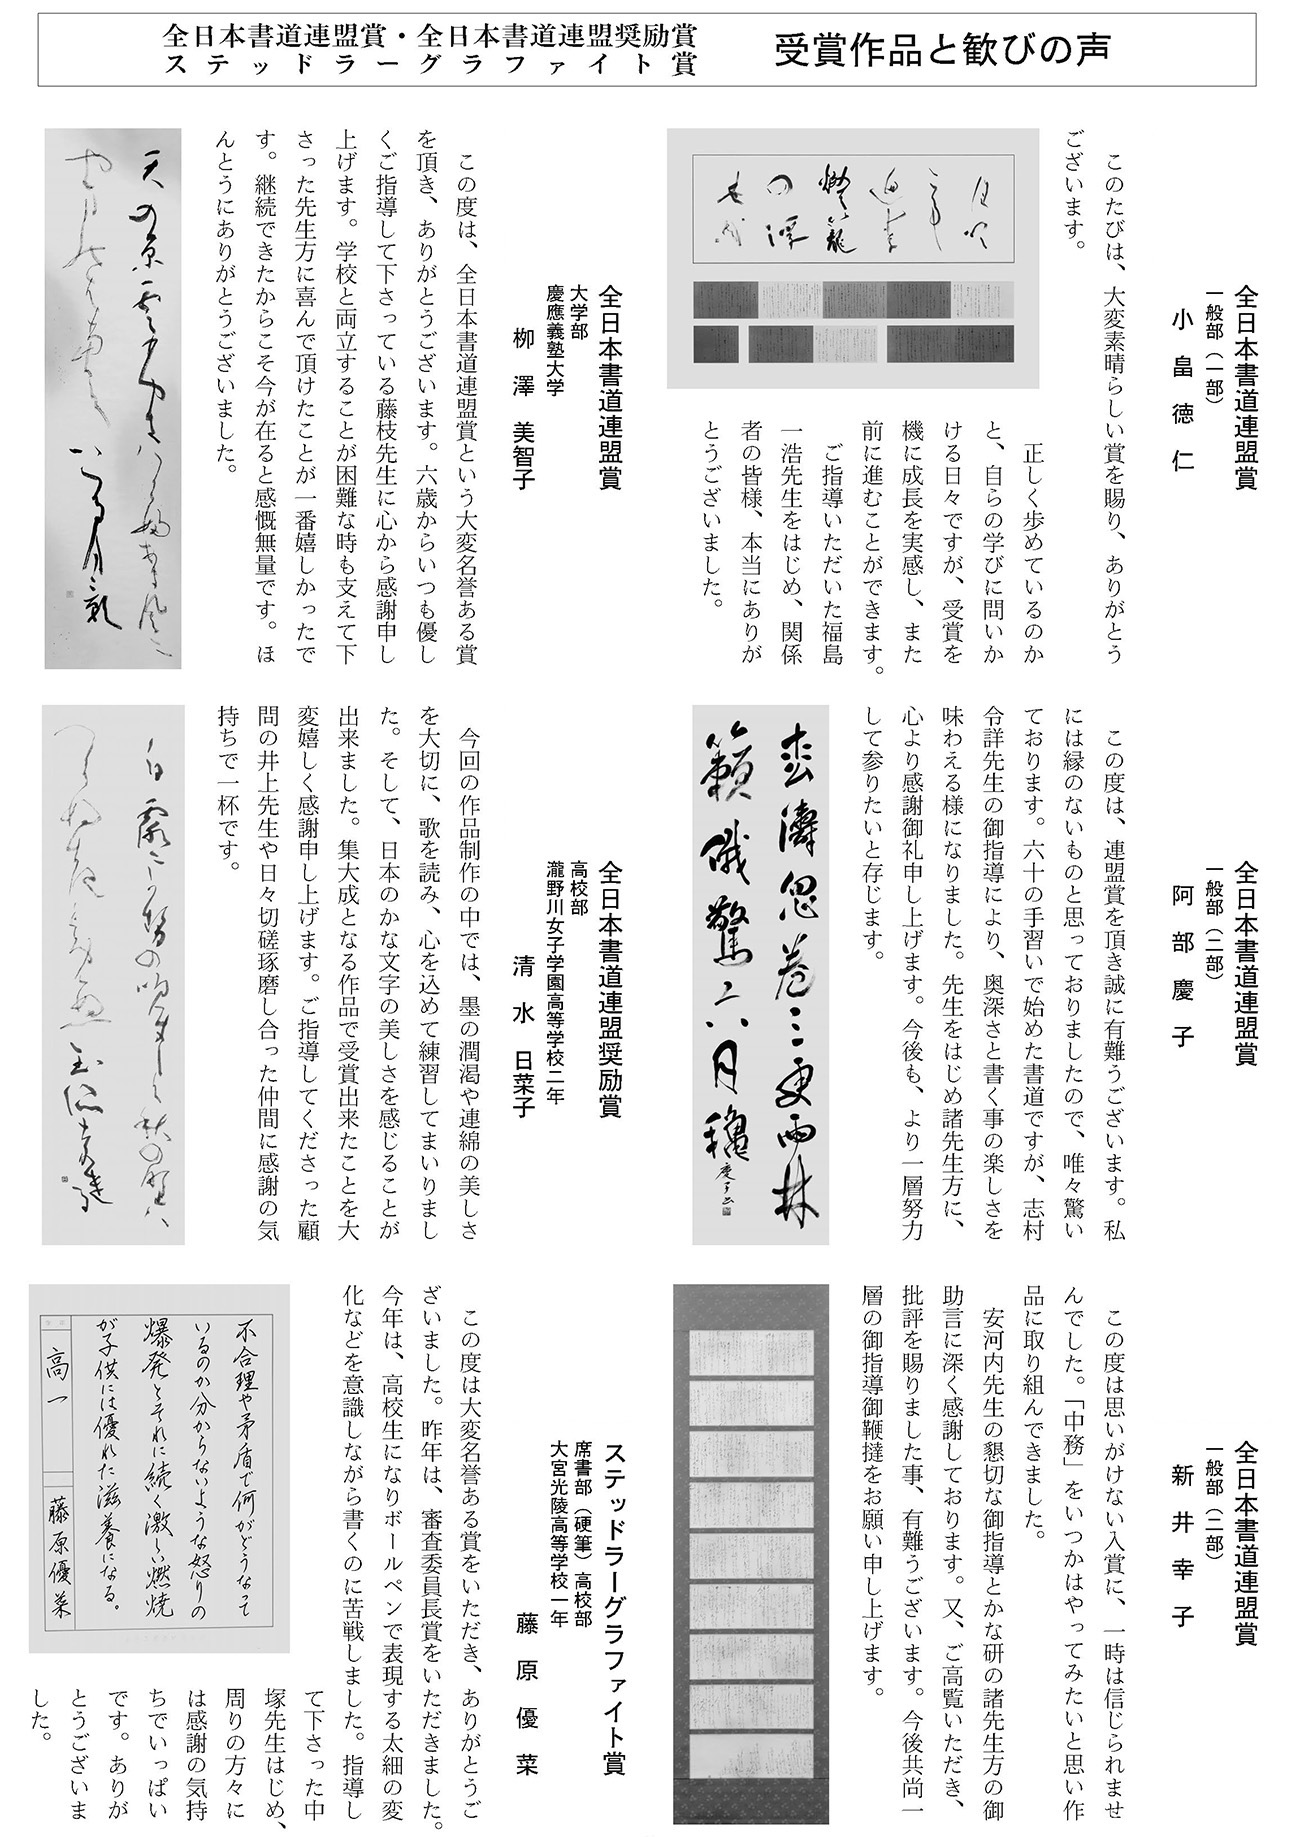 全日本書道連盟賞・全日本書道連盟奨励賞
ステッドラーグラファイト賞
受賞作品と歓びの声
全日本書道連盟賞
一般部（一部）
小畠徳仁
このたびは、大変素晴らしい賞を賜り、ありがとう
ございます。
正しく歩めているのか
と、自らの学びに問いか
ける日々ですが、受賞を
機に成長を実感し、また
前に進むことができます。
ご指導いただいた福島
一浩先生をはじめ、関係
者の皆様、本当にありが
とうございました。
全日本書道連盟賞
大学部
慶應義塾大学
柳澤美智子
この度は、全日本書道連盟賞という大変名誉ある賞
を頂き、ありがとうございます。六歳からいつも優し
くご指導して下さっている藤枝先生に心から感謝申し
上げます。学校と両立することが困難な時も支えて下
さった先生方に喜んで頂けたことが一番嬉しかったで
す。継続できたからこそ今が在ると感慨無量です。ほ
んとうにありがとうございました。
全日本書道連盟賞
一般部（二部）
阿部慶子
この度は、連盟賞を頂き誠に有難うございます。私
には縁のないものと思っておりましたので、唯々驚い
ております。六十の手習いで始めた書道ですが、志村
令詳先生の御指導により、奥深さと書く事の楽しさを
味わえる様になりました。先生をはじめ諸先生方に、
心より感謝御礼申し上げます。今後も、より一層努力
して参りたいと存じます。
松濤忽巻三更雨林
籟俄驚六月秋
慶子書
全日本書道連盟奨励賞
高校部
瀧野川女子学園高等学校二年
清水日菜子
今回の作品制作の中では、墨の潤渇や連綿の美しさ
を大切に、歌を読み、心を込めて練習してまいりまし
た。そして、日本のかな文字の美しさを感じることが
出来ました。集大成となる作品で受賞出来たことを大
変嬉しく感謝申し上げます。ご指導してくださった顧
問の井上先生や日々切磋琢磨し合った仲間に感謝の気
持ちで一杯です。
全日本書道連盟賞
一般部（二部）
新井幸子
この度は思いがけない入賞に、一時は信じられませ
んでした。「中務」をいつかはやってみたいと思い作
品に取り組んできました。
安河内先生の懇切な御指導とかな研の諸先生方の御
助言に深く感謝しております。又、ご高覧いただき、
批評を賜りました事、有難うございます。今後共尚一
層の御指導御鞭撻をお願い申し上げます。
ステッドラーグラファイト賞
席書部（硬筆）高校部
大宮光陵高等学校一年
藤原優菜
この度は大変名誉ある賞をいただき、ありがとうご
ざいました。昨年は、審査委員長賞をいただきました。
今年は、高校生になりボールペンで表現する太細の変
化などを意識しながら書くのに苦戦しました。指導し
て下さった中
塚先生はじめ、
周りの方々に
は感謝の気持
ちでいっぱい
です。ありが
とうございま
した。
不合理や矛盾で何がどうなって
いるのか分からないような怒りの
爆発とそれに続く激しい燃焼
が子供には優れた滋養になる。
高一
藤原優菜